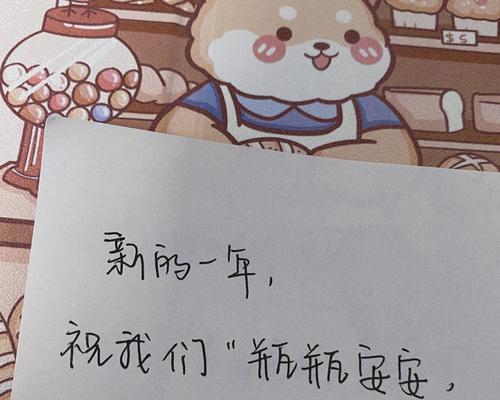 $5
新的一年，
祝我们“瓶瓶安安，